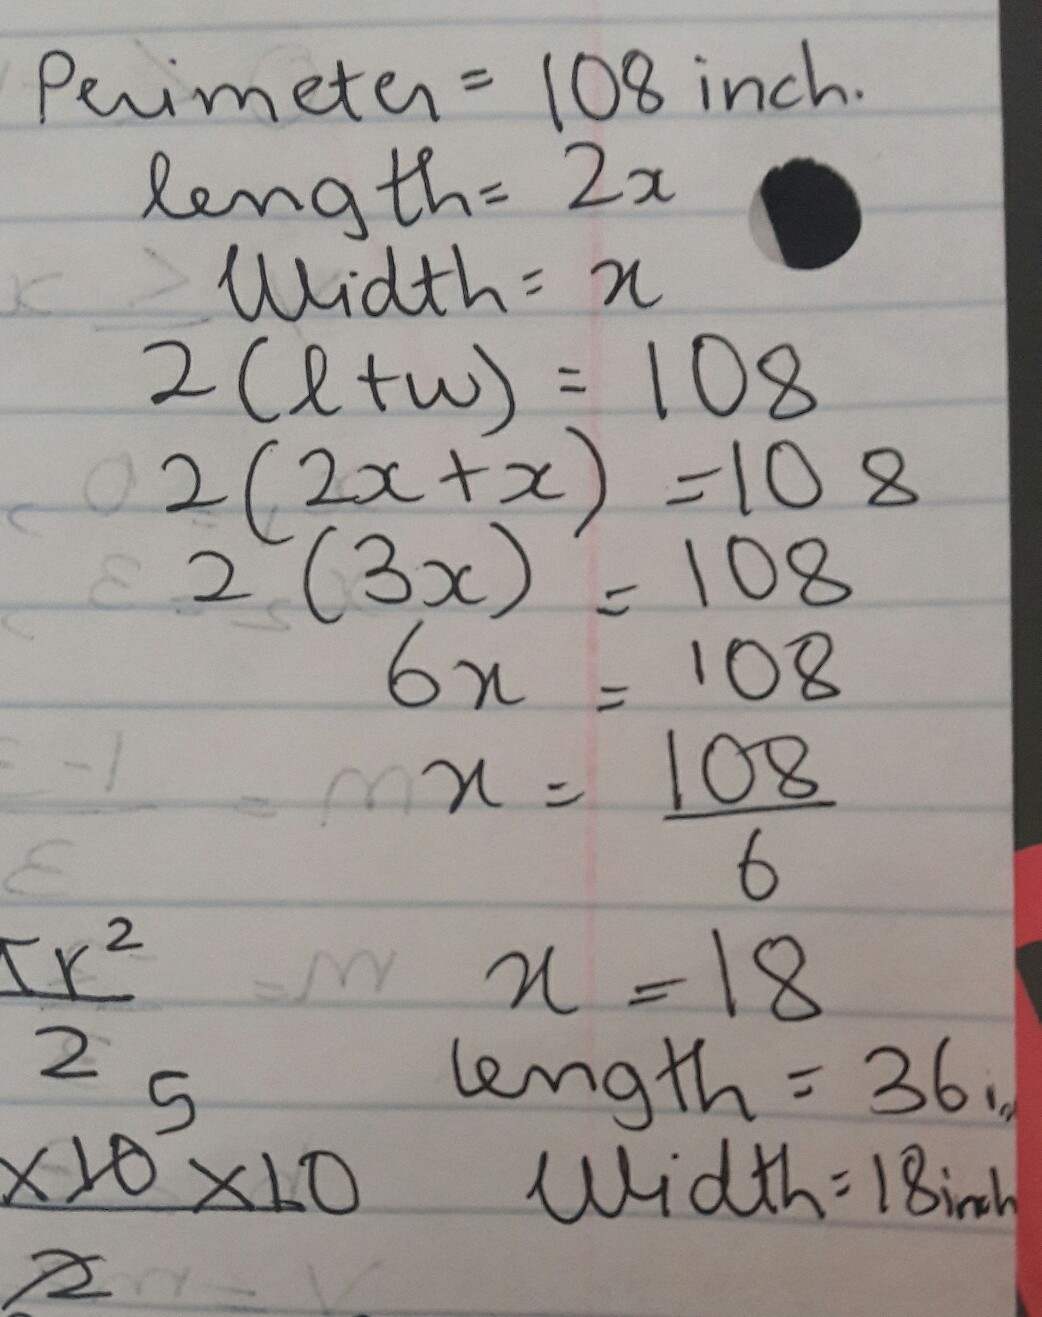 Perimeter = 108 inch.
length = 2x
Width = x
2(l+w) = 108
2(2x+x) = 108
2(3x) = 108
6x = 108
x = 108
6
x = 18
length = 36 in
Width = 18 inch
πr²
2
5
x10 x10
2